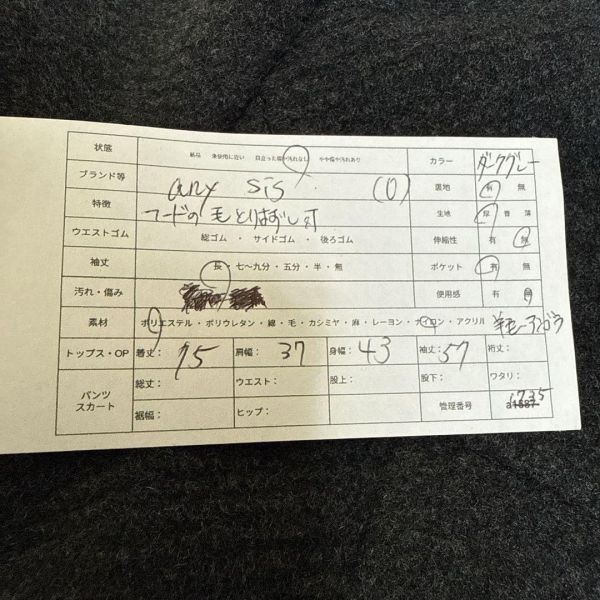 状態 新品 未使用に近い 目立った傷や汚れなし やや傷や汚れあり カラー ダークグレー
ブランド等 any sis (0) 裏地 有 無
特徴 フードの毛とりはずし可 生地 厚 普 薄
ウエストゴム 総ゴム ・ サイドゴム ・ 後ろゴム 伸縮性 有 無
袖丈 長・七〜九分・五分・半・無 ポケット 有 無
汚れ・傷み 使用感 有 無
素材 ポリエステル・ポリウレタン・綿・毛・カシミヤ・麻・レーヨン・ナイロン・アクリル 羊毛ーアンゴラ
トップス・OP 着丈: 75 肩幅: 37 身幅: 43 袖丈: 57 裄丈:
パンツ スカート 総丈: ウエスト: 股上: 股下: ワタリ:
裾幅: ヒップ: 管理番号 1735